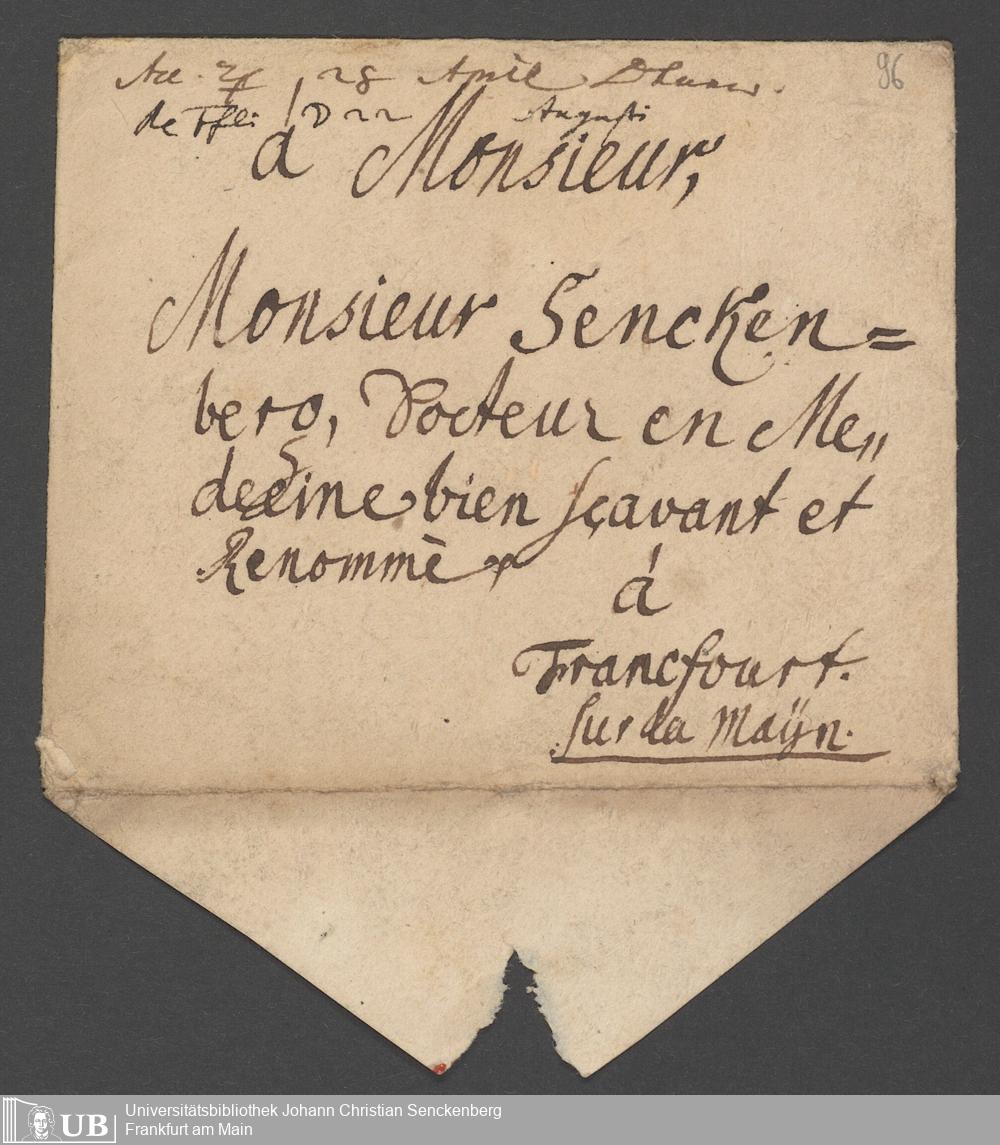 Acc. 28 April
96
de 22 Augusti
a Monsieur,
Monsieur Sencken=
berg, Docteur en Me„
decine bien sçavant et
Renommè
á
Francfourt.
sur la Maÿn.
UB
Universitätsbibliothek Johann Christian Senckenberg
Frankfurt am Main